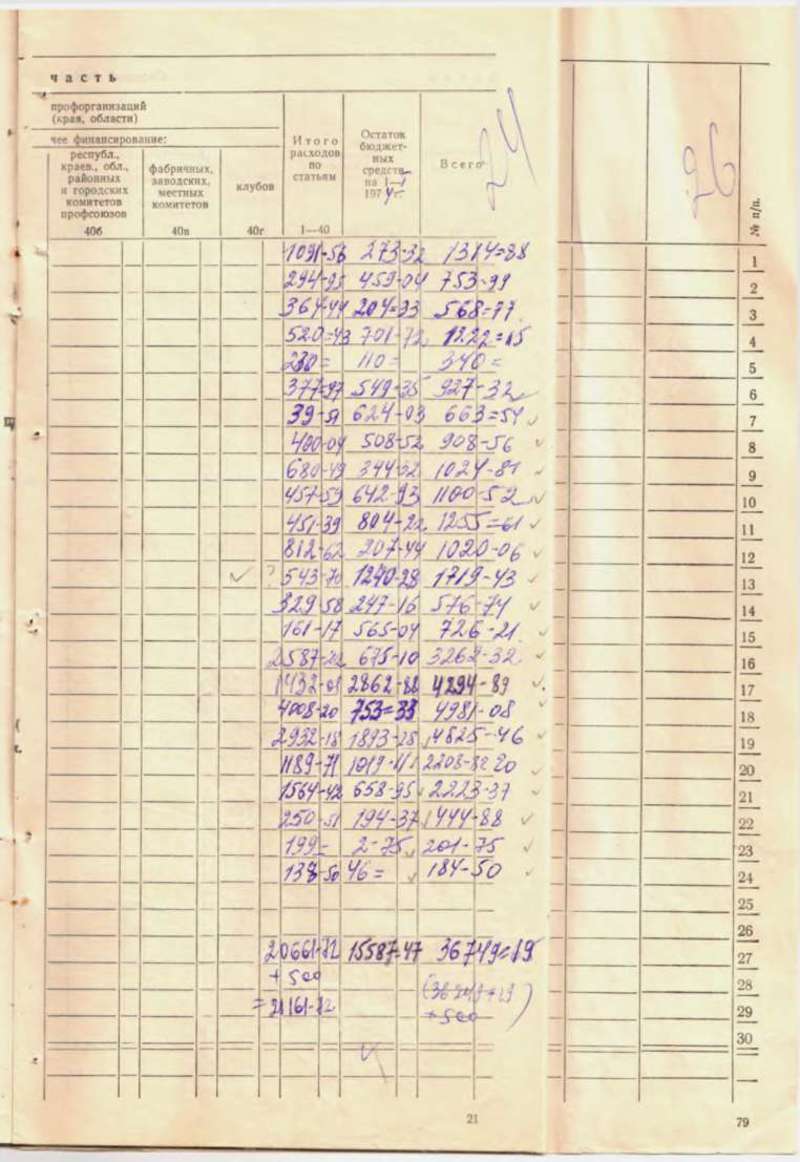 часть
профорганизаций
(края, области)
чее финансирование:
республ., краев., обл., районных и городских комитетов профсоюзов
фабричных, заводских, местных комитетов
клубов
Итого расходов по статьям
Остаток бюджетных средств на 1–1 1974 г.
Всего
24
26
№ п/п.
40б 40в 40г 1—40
1091-56 273-32 1314=88 1
294-95 459-04 753-99 2
364-44 204=33 568=77 3
520=43 701-72 1222=15 4
230= 110= 340= 5
377=97 549-35 927-32 6
39-51 624-03 663=54 7
400-04 508-52 908-56 8
680-49 344-32 1024-81 9
457-59 642-93 1100-52 10
451-39 804-22 1255=61 11
812-62 207-44 1020-06 12
? 543-70 1240-28 1719-43 13
329-58 247-16 576-74 14
161-17 565-04 726-21 15
2587-22 675-10 3262-32 16
1432-01 2862-88 4294-89 17
4008-20 753=33 4981-08 18
2932-18 1893-28 4825-46 19
1189-71 1019-11 2208-82 20 20
1564-42 658-95 2223-37 21
250-51 194-37 1444-88 22
199- 2-75 201-75 23
138-50 46= 184-50 24
25
26
20661-72 15587-47 36749=19 27
+500 28
=21161-72 +500 29
30
21
79